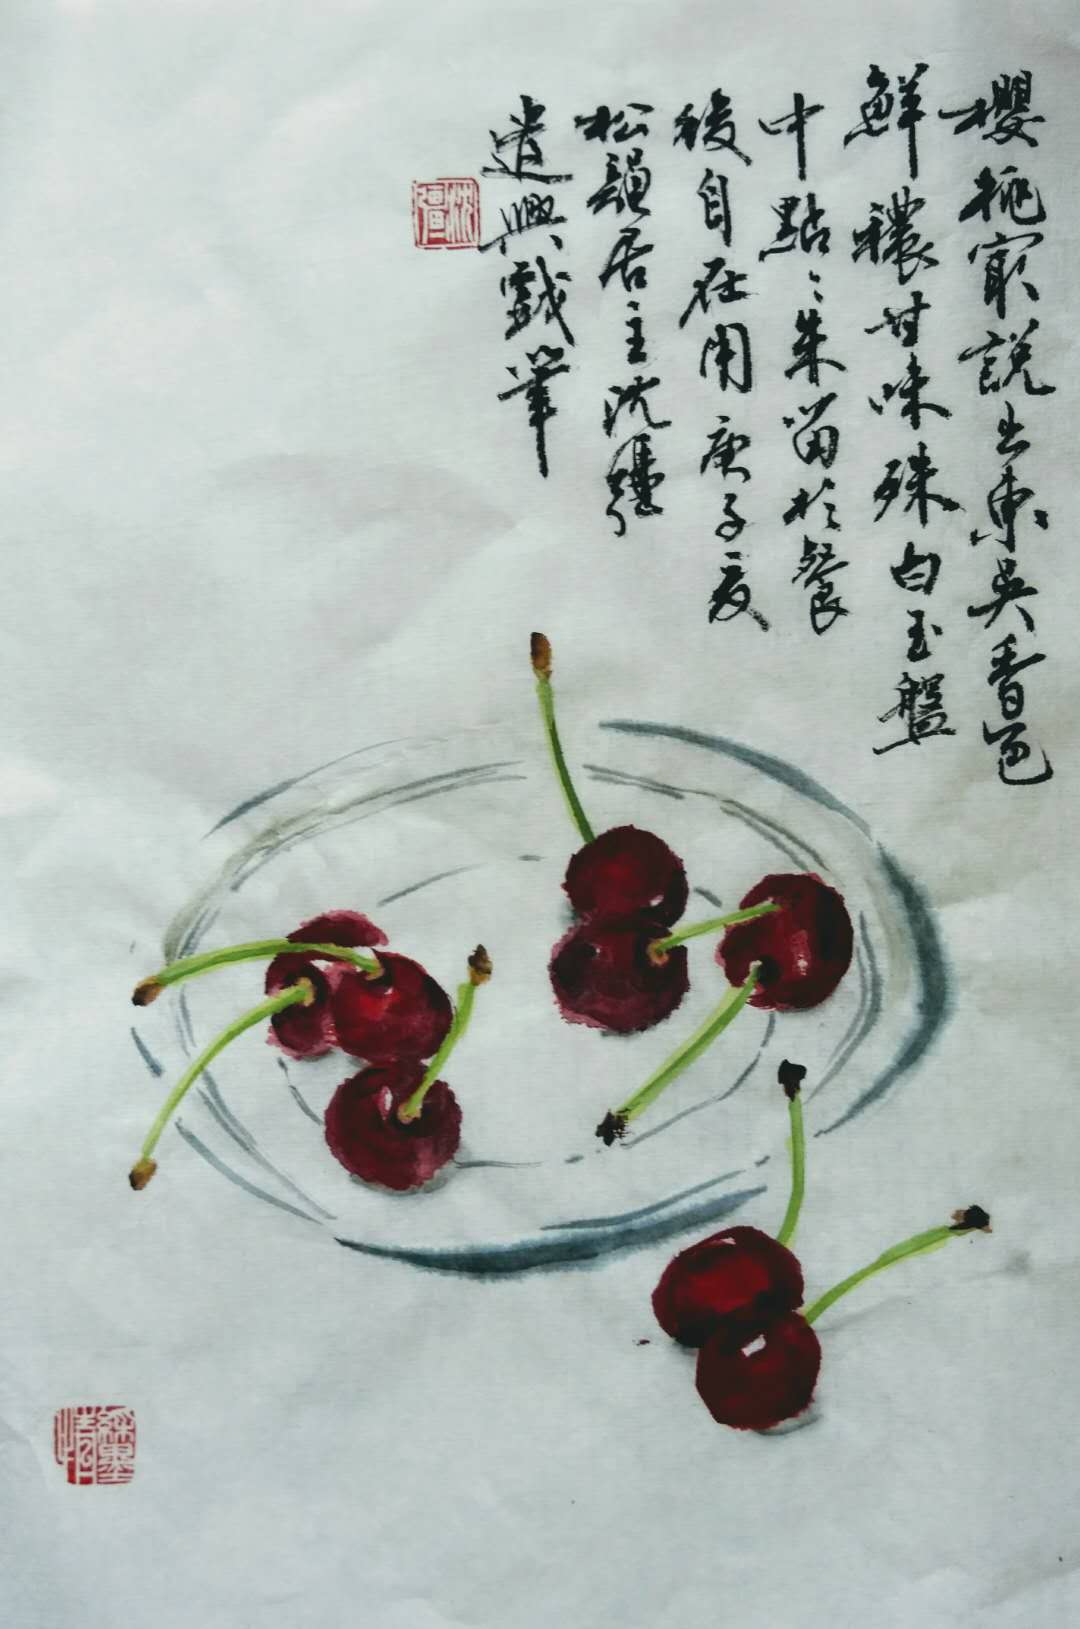 櫻桃最說出東吳香色
鮮穠甘味殊白玉盤
中點々朱留於餐
後自在用庚子夏
松韻居主沈彊
遣興戲筆
沈彊